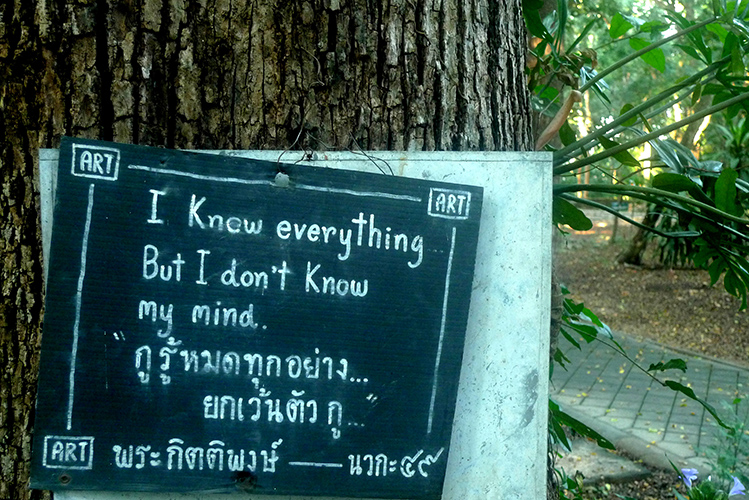 ART
ART
I Know everything..
But I don't Know
my mind.
"กูรู้หมดทุกอย่าง...
ยกเว้นตัวกู..."
ART พระกิตติพงษ์ — นวกะ๔๙